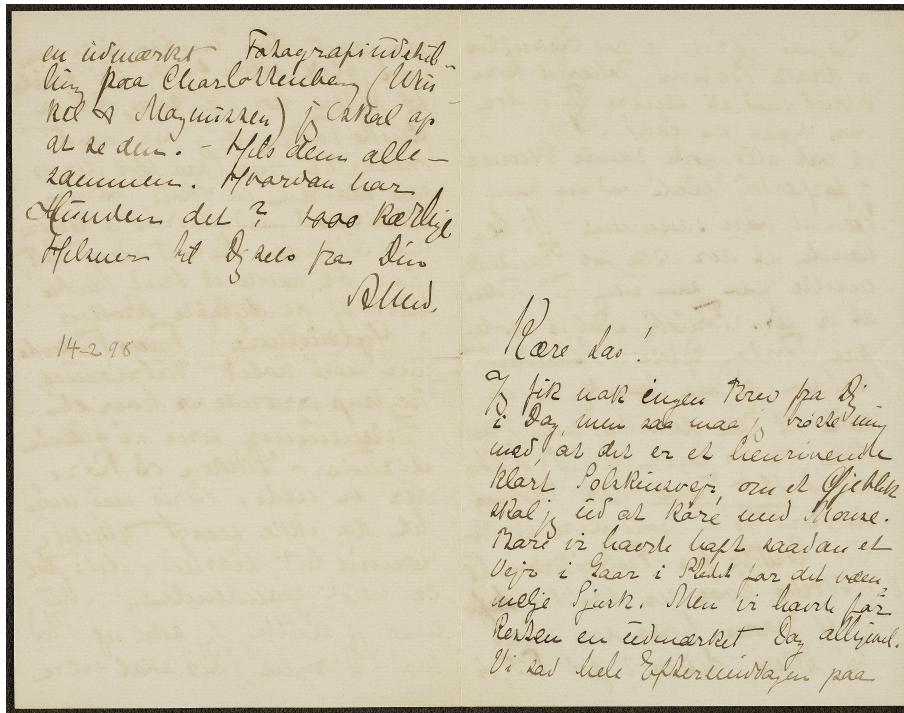 en udmærket Fotografiudstil-
ling paa Charlottenborg (Win-
kel & Magnussen) jeg skal op
at se den. - Hils dem alle-
sammen. Hvordan har
Hunden det? 1000 kærlige
Hilsner til Dig selv fra Din
Alhed.
14-2 98
Kære Las!
Jeg fik nok ingen Brev fra Dig
i Dag, men saa maa jeg trøste mig
med, at det er et henrivende
klart Solskinsvejr, om et Øjeblik
skal jeg ud at køre med Mouse.
Bare vi havde haft saadan et
Vejr i Gaar i Stedet for det væm-
melige Sjask. Men vi havde for
Resten en udmærket Dag alligevel.
Vi sad hele Eftermiddagen paa